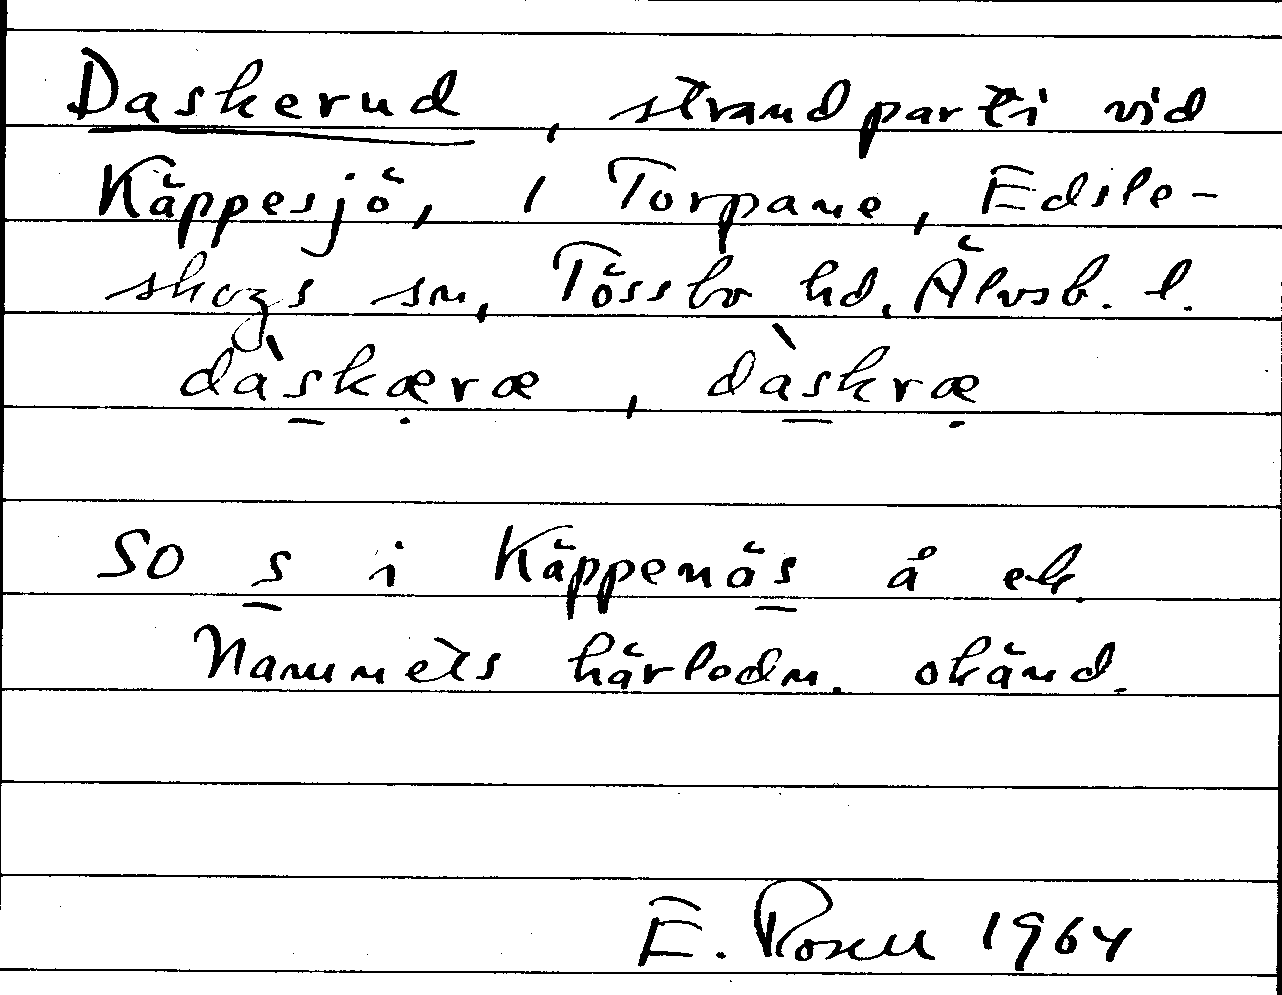 Daskerud, strandparti vid
Käppesjö, i Torpane, Edsle-
skogs sn, Tössbo hd, Älvsb. l.
dàs̲kæ̣ræ, dàs̲kræ̣
SO s̲ i Käppenäs̲ å ek.
Namnets härledn. okänd.
E. Rosell 1964